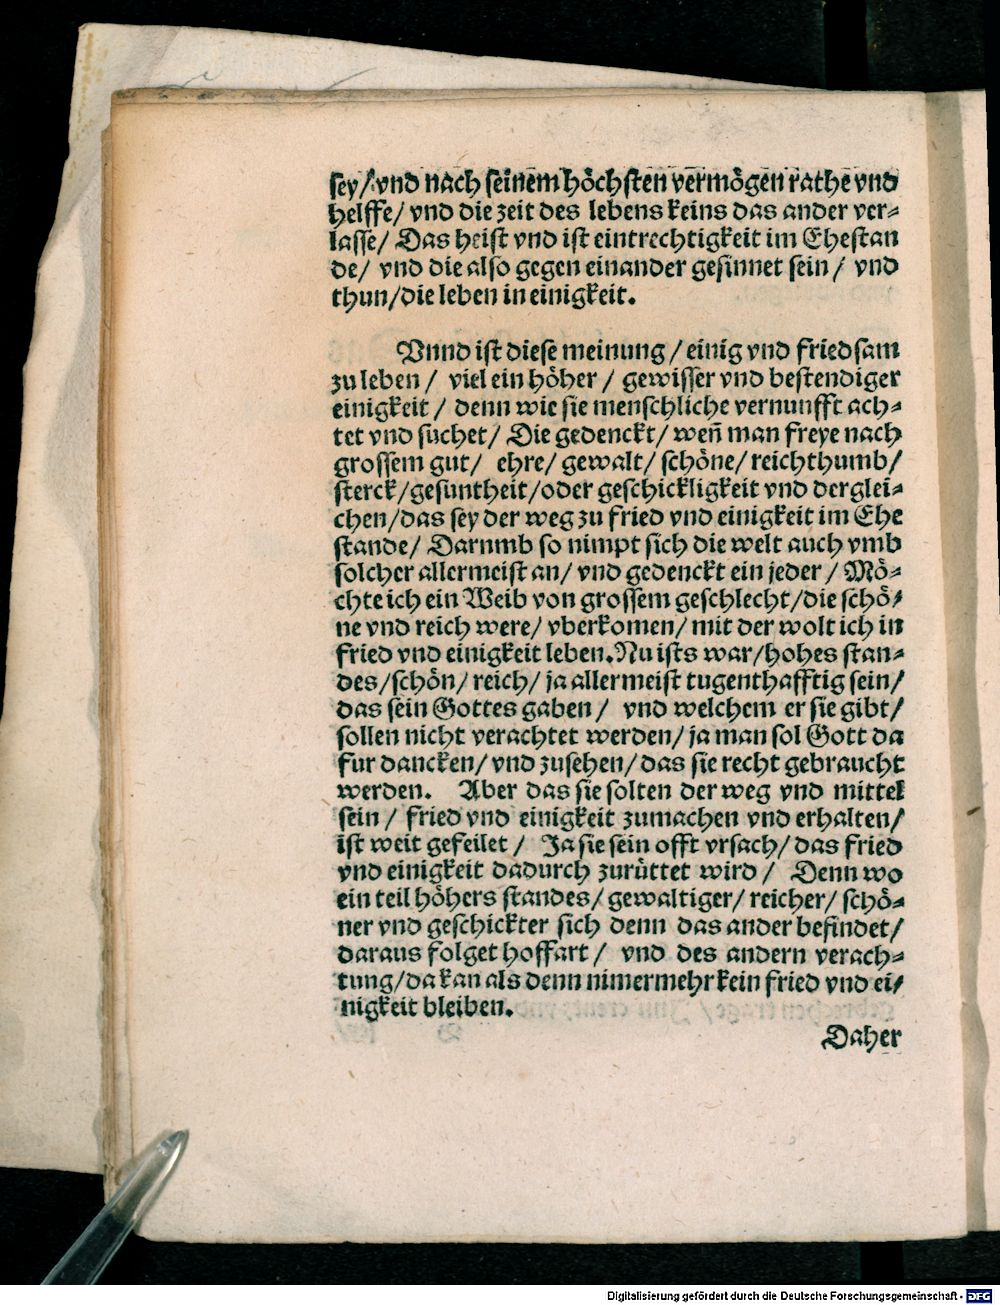 sey/ vnd nach seinem höchsten vermögen rathe vnd
helffe/ vnd die zeit des lebens keins das ander ver-
lasse/ Das heist vnd ist eintrechtigkeit im Ehestan
de/ vnd die also gegen einander gesinnet sein/ vnd
thun/die leben in einigkeit.
Vnnd ist diese meinung/ einig vnd friedsam
zu leben/ viel ein höher/ gewisser vnd bestendiger
einigkeit/ denn wie sie menschliche vernunfft ach-
tet vnd suchet/ Die gedenckt/ weñ man freye nach
grossem gut/ ehre/ gewalt/ schöne/ reichthumb/
sterck/gesuntheit/oder geschickligkeit vnd derglei-
chen/das sey der weg zu fried vnd einigkeit im Ehe
stande/ Darumb so nimpt sich die welt auch vmb
solcher allermeist an/ vnd gedenckt ein jeder/ Mö-
chte ich ein Weib von grossem geschlecht/die schö/
ne vnd reich were/ vberkomen/ mit der wolt ich in
fried vnd einigkeit leben. Nu ists war/hohes stan-
des/schön/ reich/ ja allermeist tugenthafftig sein/
das sein Gottes gaben/ vnd welchem er sie gibt/
sollen nicht verachtet werden/ ja man sol Gott da
fur dancken/ vnd zusehen/ das sie recht gebraucht
werden. Aber das sie solten der weg vnd mittel
sein/ fried vnd einigkeit zumachen vnd erhalten/
ist weit gefeilet/ Ja sie sein offt vrsach/ das fried
vnd einigkeit dadurch zurüttet wird/ Denn wo
ein teil höhers standes/ gewaltiger/ reicher/ schö-
ner vnd geschickter sich denn das ander befindet/
daraus folget hoffart/ vnd des andern verach-
tung/da kan als denn nimermehr kein fried vnd ei/
nigkeit bleiben.
Daher
Digitalisierung gefördert durch die Deutsche Forschungsgemeinschaft - DFG